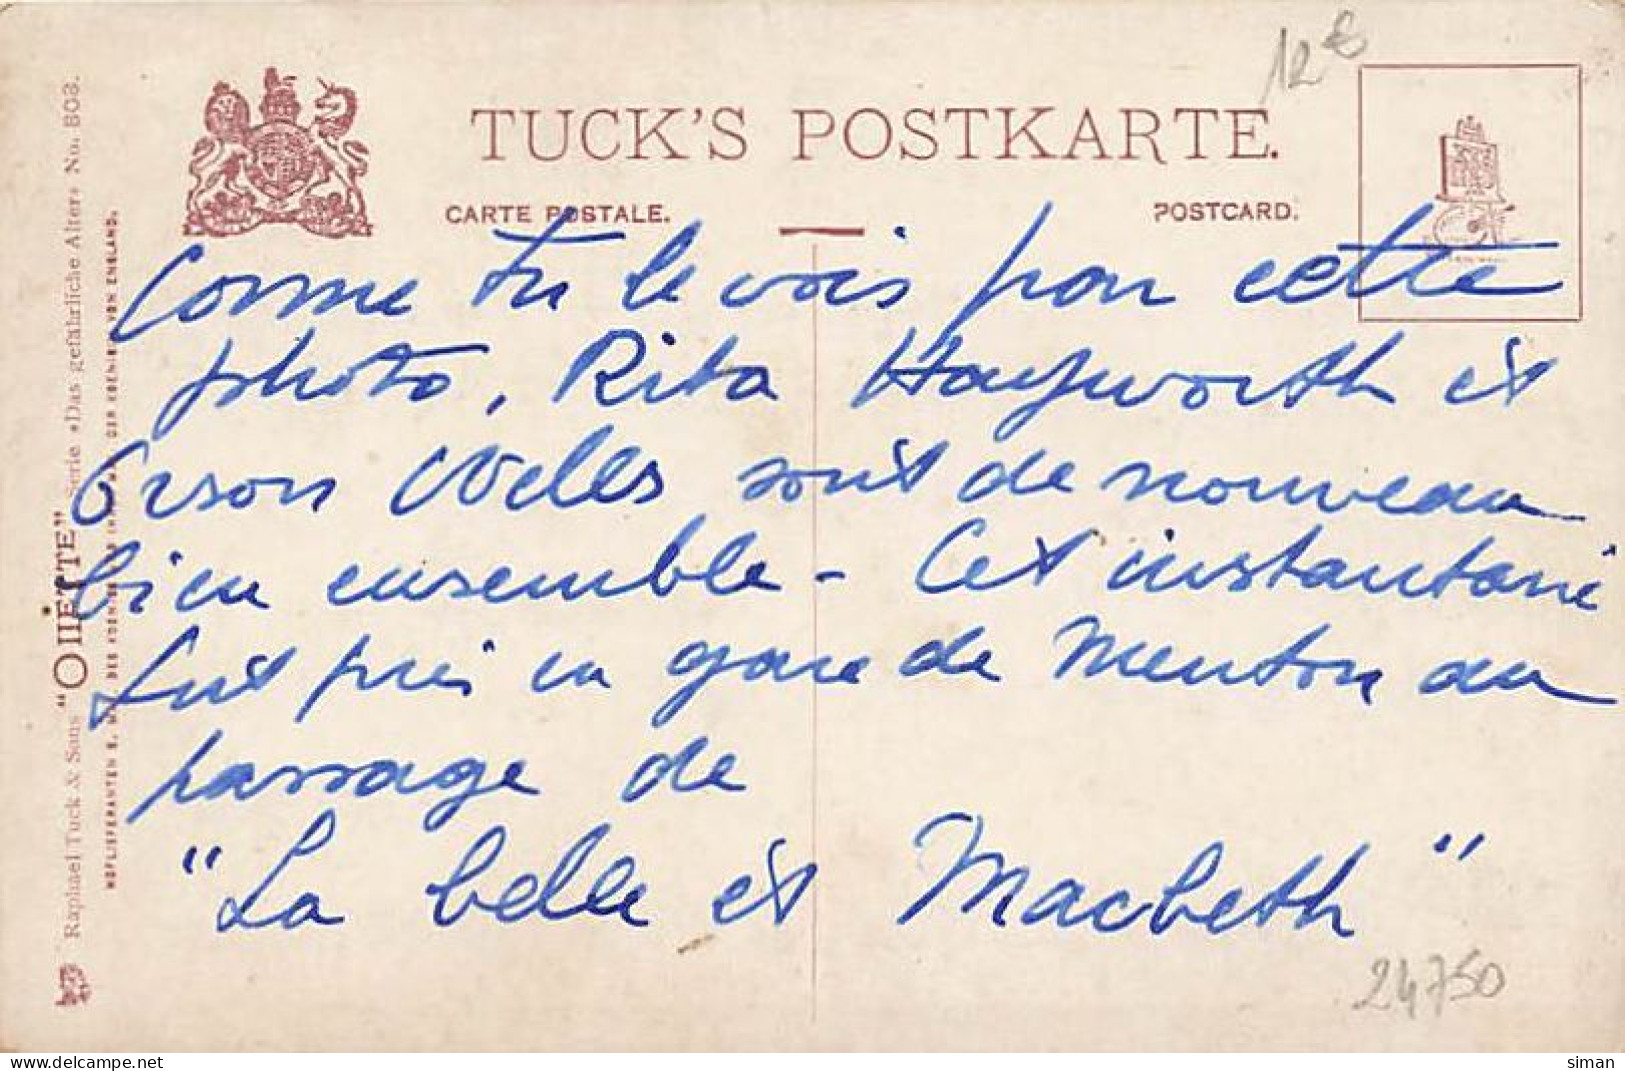 12€
TUCK'S POSTKARTE.
CARTE POSTALE.
POSTCARD.
Comme tu le vois par cette
photo, Rita Hayworth et
Orson Welles sont de nouveau
bien ensemble - Cet instantané
fut pris en gare de Menton au
passage de
"La belle et Macbeth"
24750
Raphael Tuck & Sons "OILETTE" Serie »Das gefährliche Alter« No. 803.
HOFLIEFERANTEN S. M. DES KOENIGS UND DER KOENIGIN VON ENGLAND.
siman